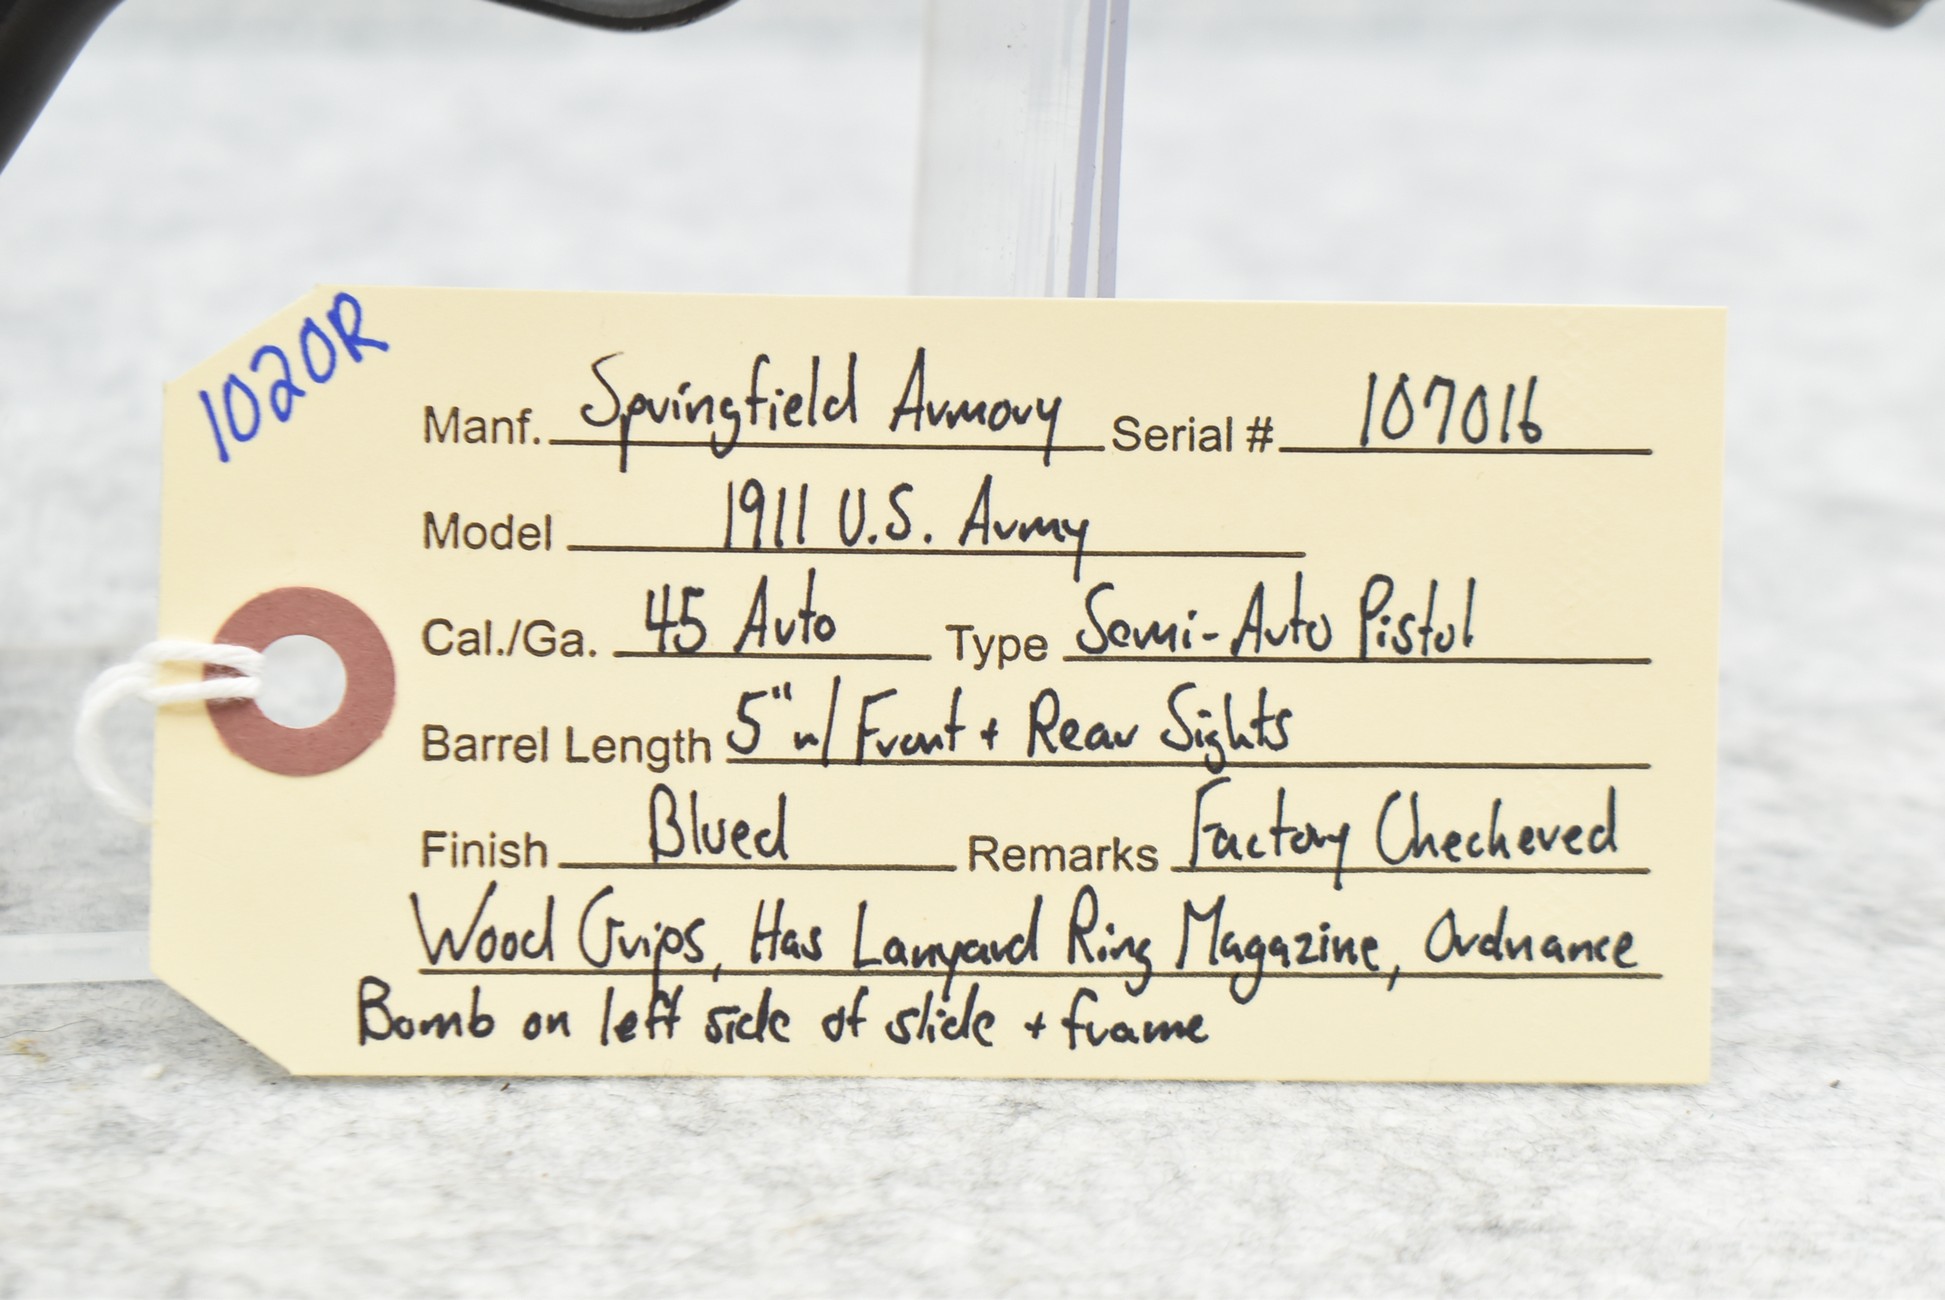 1020R
Manf. Springfield Armory Serial # 107016
Model 1911 U.S. Army
Cal./Ga. 45 Auto Type Semi-Auto Pistol
Barrel Length 5" w/ Front + Rear Sights
Finish Blued Remarks Factory Checkered
Wood Grips, Has Lanyard Ring Magazine, Ordnance
Bomb on left side of slide + frame